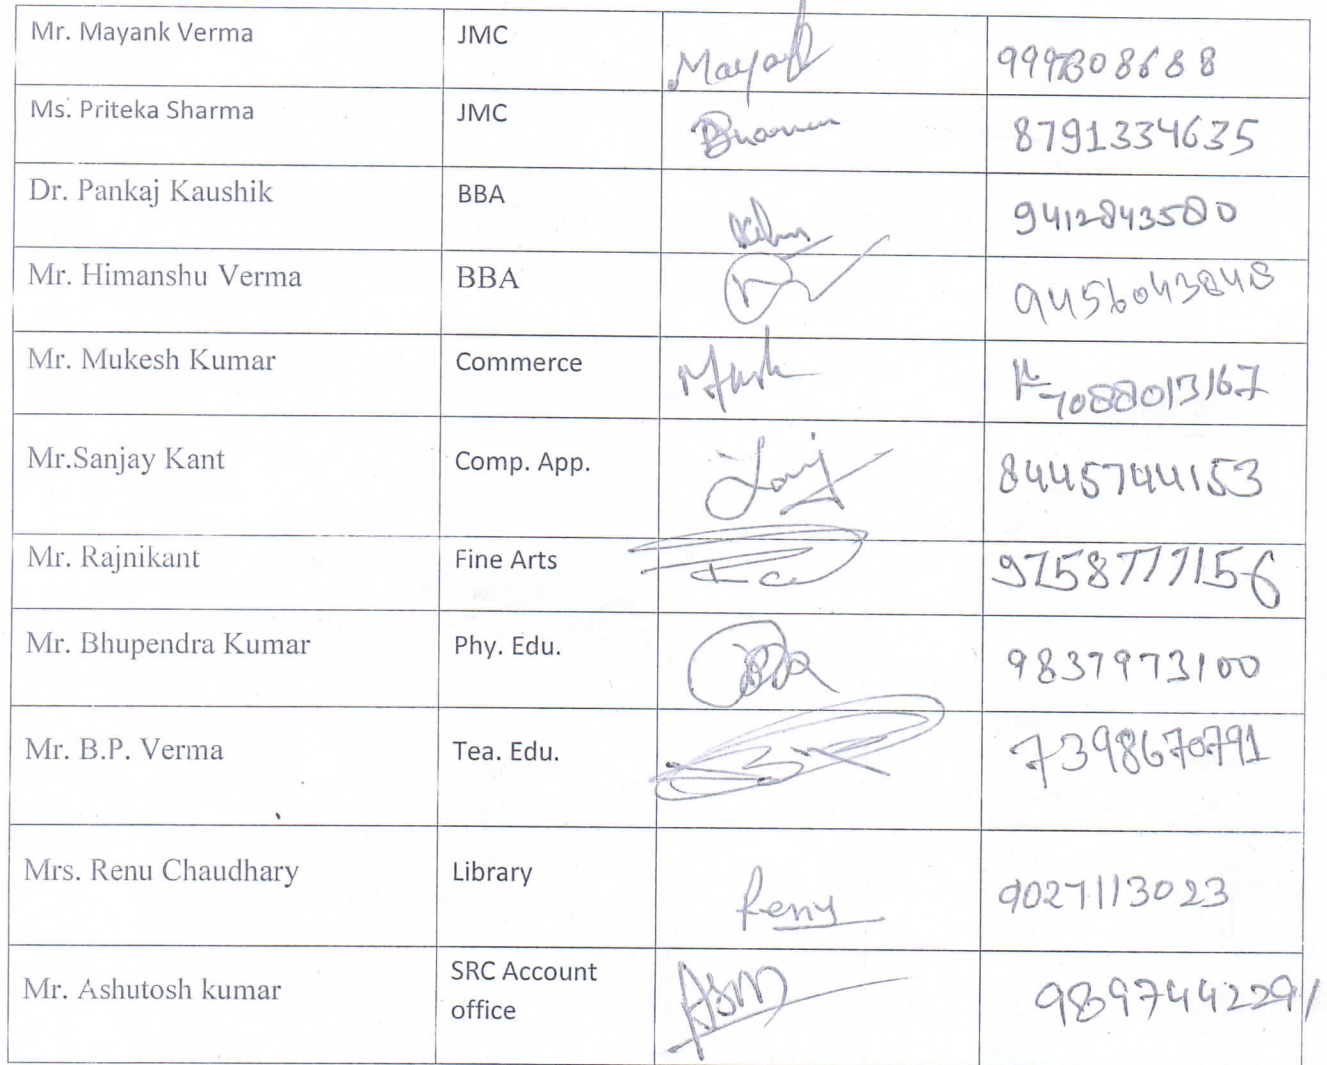 Mr. Mayank Verma JMC Mayank
Ms. Priteka Sharma JMC 8791334635
Dr. Pankaj Kaushik BBA 9412843580
Mr. Himanshu Verma BBA 9456043848
Mr. Mukesh Kumar Commerce 7088013167
Mr.Sanjay Kant Comp. App. 8445744153
Mr. Rajnikant Fine Arts 9758777156
Mr. Bhupendra Kumar Phy. Edu. 9837973100
Mr. B.P. Verma Tea. Edu. 7398670791
Mrs. Renu Chaudhary Library Renu 9027113023
SRC Account
Mr. Ashutosh kumar office 9897442291